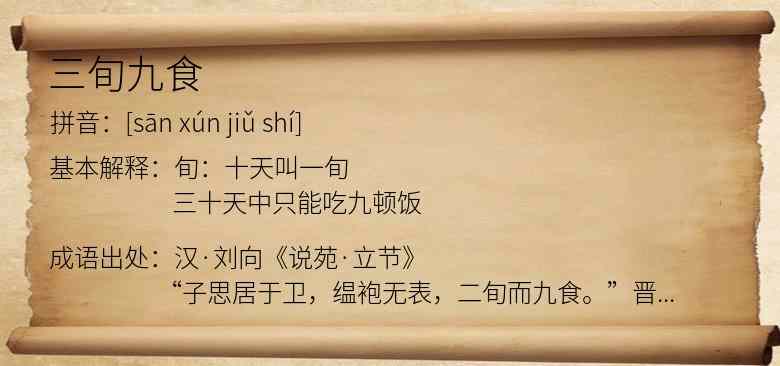 三旬九食
拼音：[sān xún jiǔ shí]
基本解释：旬：十天叫一旬
三十天中只能吃九顿饭
成语出处：汉·刘向《说苑·立节》
“子思居于卫，缊袍无表，二旬而九食。”晋...